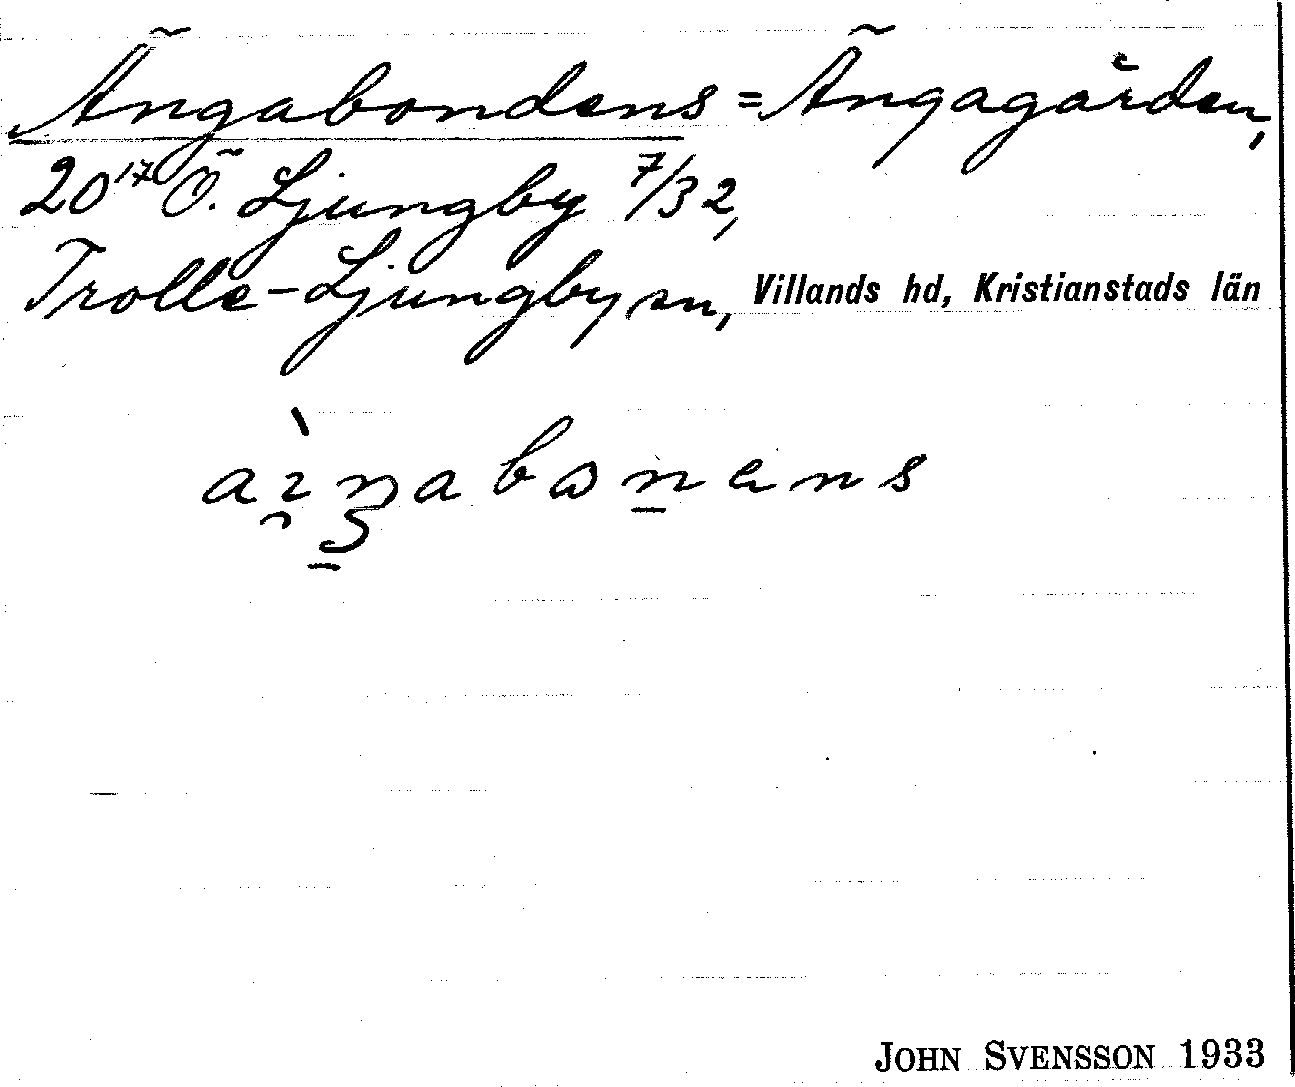 Ängabondens = Ängagården,
20¹⁷ Ö. Ljungby 7/32,
Trolle-Ljungby sn, Villands hd, Kristianstads län
JOHN SVENSSON 1933